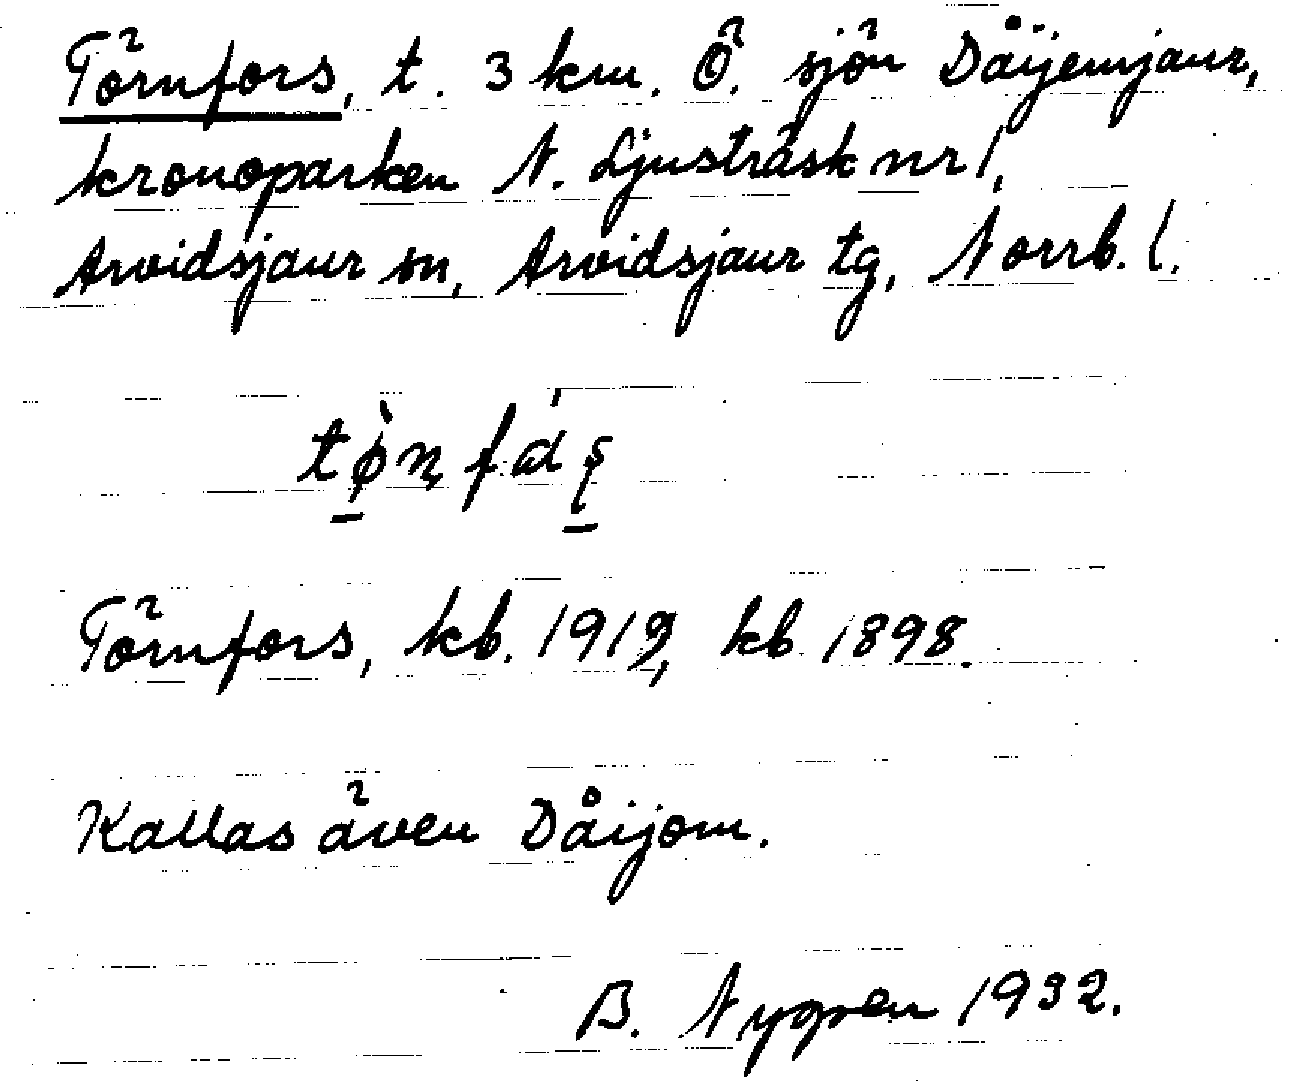 Törnfors, t. 3 km. Ö. sjön Dåijemjaur,
kronoparken N. Ljusträsk nr 1,
Arvidsjaur sn, Arvidsjaur tg, Norrb. l.
Törnfors, kb. 1919, kb 1898.
Kallas även Dåijom.
B. Nygren 1932.